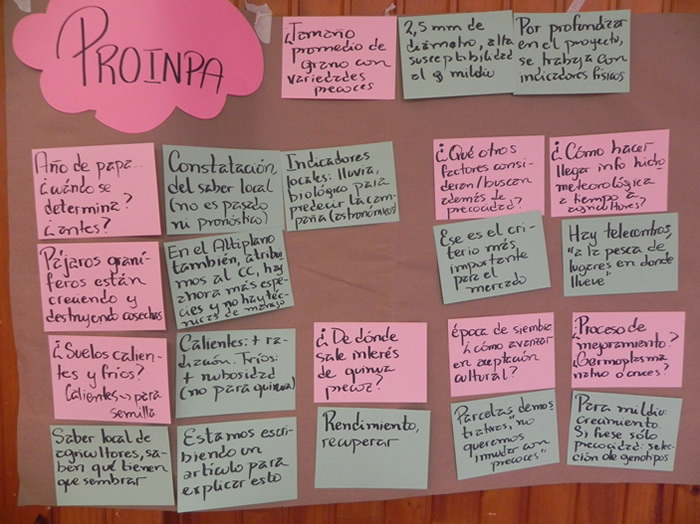 PROINPA
¿Tamaño
promedio de
grano con
variedades
precoces
2,5 mm de
diámetro, alta
susceptibilidad
al mildiu
Por profundizar
en el proyecto,
se trabaja con
indicadores físicos
Año de papa...
¿cuándo se
determina?
¿antes?
Constatación
del saber local
(no es pasado
ni pronóstico)
Indicadores
locales: lluvia,
biológico para
predecir la cam-
paña (astronómicos)
¿Qué otros
factores consi-
deran/buscan
además de
precocidad?
¿Cómo hacer
llegar info hidro-
meteorológica
a tiempo a
agricultores?
Pájaros graní-
feros están
creciendo y
destruyendo cosechas
En el Altiplano
también, atribui-
mos al CC, hay
ahora más espe-
cies y no hay téc-
nicas de manejo
Ese es el cri-
terio más
importante
para el
mercado
Hay telecentros,
"a la pesca de
lugares en donde
llueve"
¿Suelos calien-
tes y fríos?
Calientes → para
semilla
Calientes: + ra-
diación. Fríos:
+ nubosidad
(no para quinua)
¿De dónde
sale interés
de quinua
precoz?
época de siembra
¿cómo avanzar
en aceptación
cultural?
¿Proceso de
mejoramiento?
¿Germoplasma
nativo o cruces?
Saber local de
agricultores, sa-
ben qué tienen
que sembrar
Estamos escri-
biendo un
artículo para
explicar esto
Rendimiento,
recuperar
Parcelas demos-
trativas, "no
queremos
inundar con
precoces"
Para mildiu:
crecimiento.
Si fuese sólo
precocidad: selec-
ción de genotipos